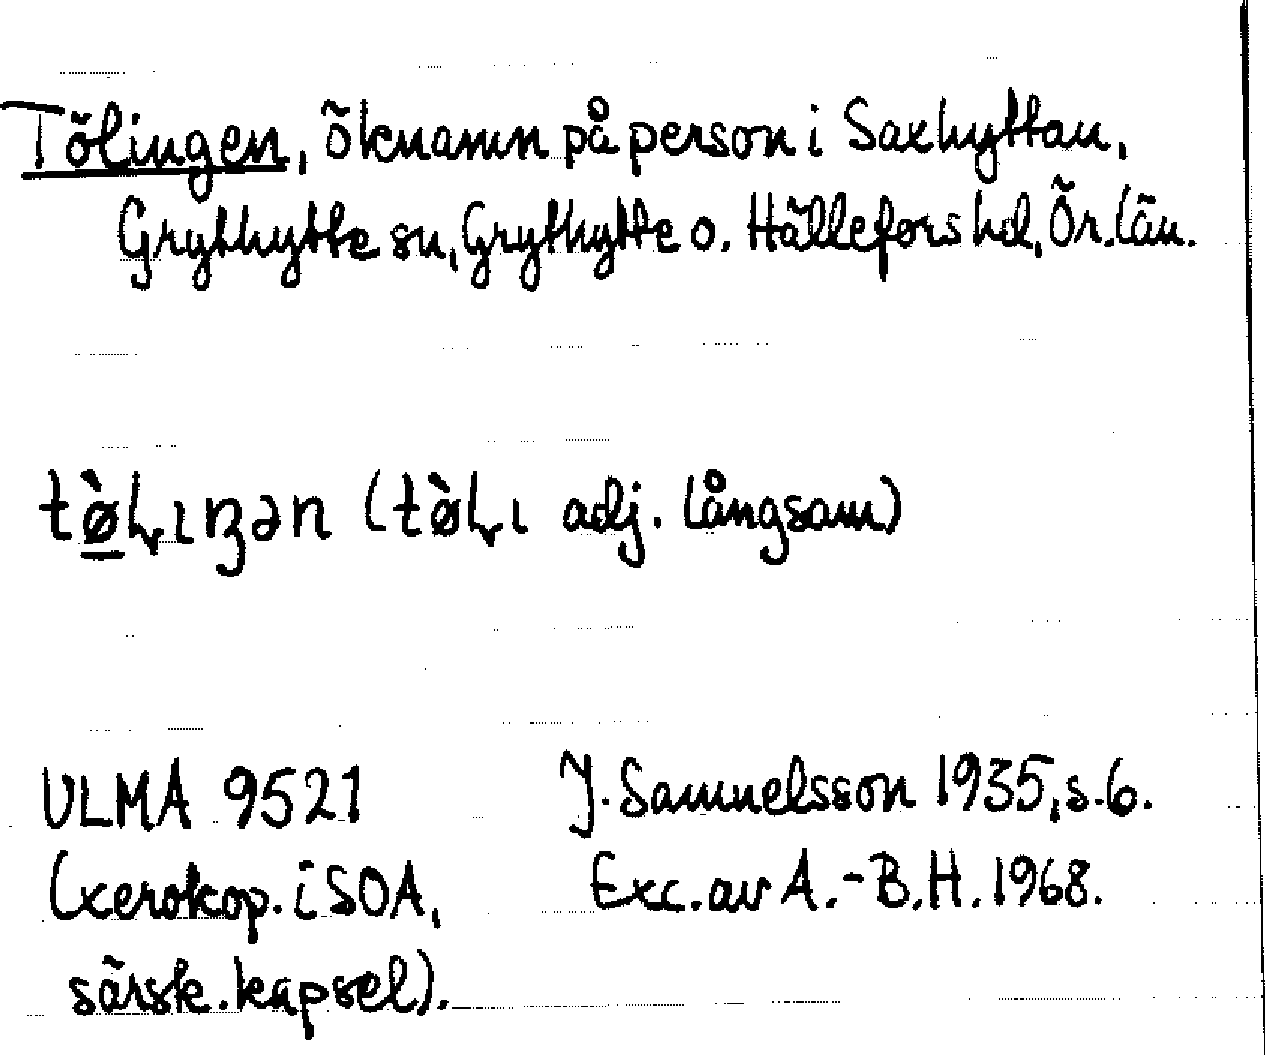 Tölingen, öknamn på person i Saxhyttan,
Grythytte sn, Grythytte o. Hällefors hd, Ör. län.
tø̀ɫɩŋən (tø̀ɫɩ adj. långsam)
ULMA 9521
J. Samuelsson 1935, s. 6.
(xerokop. i SOA,
Exc. av A.-B.H. 1968.
särsk. kapsel).